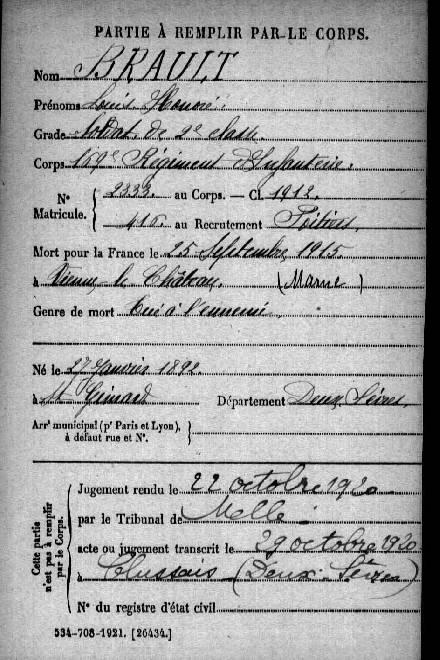 PARTIE À REMPLIR PAR LE CORPS.
Nom BRAULT
Prénoms Louis Honoré
Grade Soldat de 2e classe
Corps 159e Régiment d'Infanterie
No Matricule. { 2333. au Corps. — Cl. 1912.
416. au Recrutement Poitiers
Mort pour la France le 25 Septembre 1915
à Vienne le Château (Marne)
Genre de mort Tué à l'ennemi
Né le 27 Janvier 1892
à St Génard Département Deux Sèvres
Arrt municipal (pr Paris et Lyon), à défaut rue et No. }
Cette partie n'est pas à remplir par le Corps.
Jugement rendu le 22 octobre 1920
par le Tribunal de Melle
acte ou jugement transcrit le 29 octobre 1920
à Clussais (Deux-Sèvres)
No du registre d'état civil
534-708-1921. [26434.]